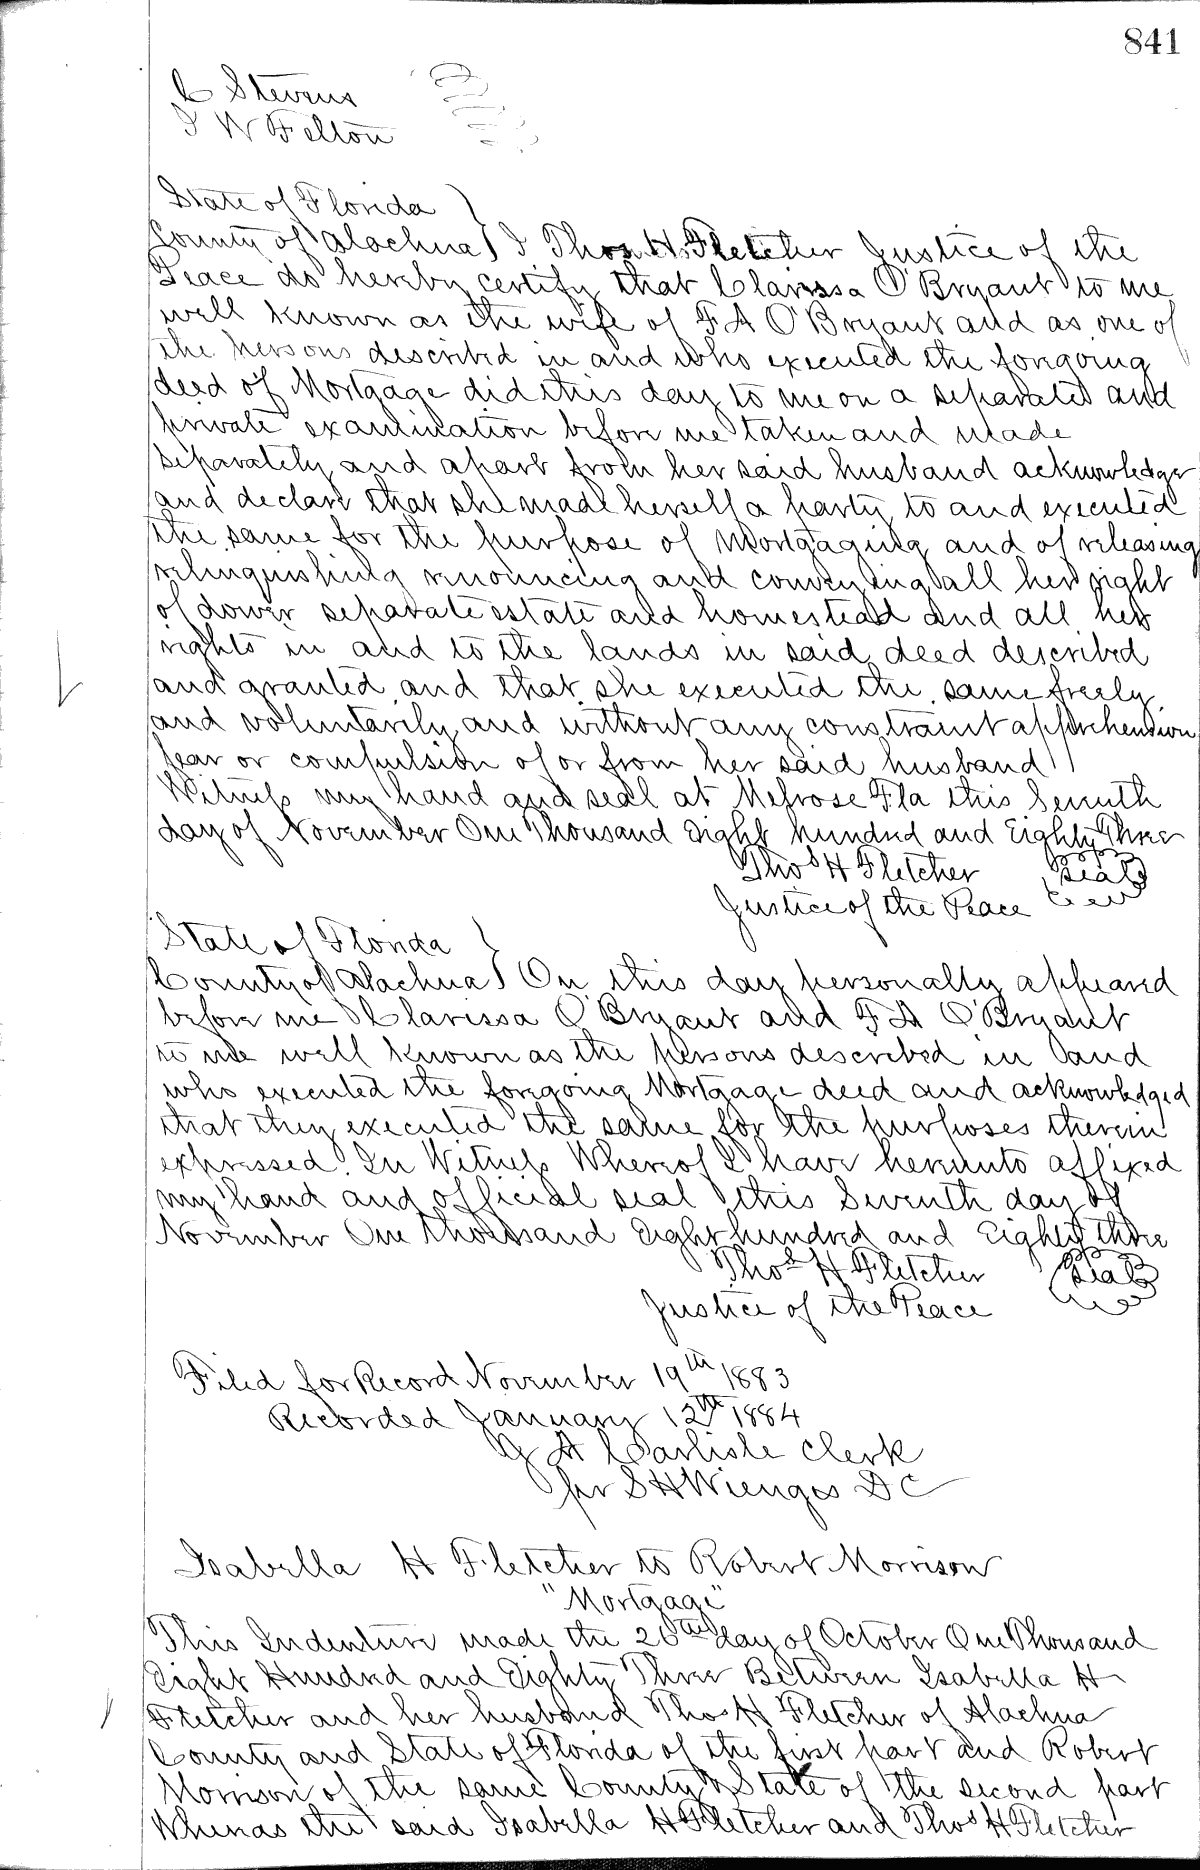 841
C Stevens
I W Felton
State of Florida }
County of Alachua } I Thos H Fletcher Justice of the
Peace do hereby certify that Clarissa O'Bryant to me
well known as the wife of F A O'Bryant and as one of
the persons described in and who executed the foregoing
deed of Mortgage did this day to me on a separate and
private examination before me taken and made
separately and apart from her said husband acknowledge
and declare that she made herself a party to and executed
the same for the purpose of Mortgaging and of releasing
relinquishing renouncing and conveying all her right
of dower separate estate and homestead and all her
rights in and to the lands in said deed described
and granted and that she executed the same freely
and voluntarily and without any constraint apprehension
fear or compulsion of or from her said husband
Witness my hand and seal at Melrose Fla this Seventh
day of November One Thousand Eight hundred and Eighty Three
Thos H Fletcher Seal
Justice of the Peace
State of Florida }
County of Alachua } On this day personally appeared
before me Clarissa O'Bryant and F A O'Bryant
to me well known as the persons described in and
who executed the foregoing Mortgage deed and acknowledged
that they executed the same for the purposes therein
expressed. In Witness Whereof I have hereunto affixed
my hand and official seal this Seventh day of
November One thousand Eight hundred and Eighty three
Thos H Fletcher Seal
Justice of the Peace
Filed for Record November 19th 1883
Recorded January 12th 1884
J A Carlisle Clerk
per S H Wienges D C
Isabella H Fletcher to Robert Morrison
"Mortgage"
This Indenture made the 26th day of October One Thousand
Eight Hundred and Eighty Three Between Isabella H
Fletcher and her husband Thos H Fletcher of Alachua
County and State of Florida of the first part and Robert
Morrison of the same County & State of the second part
Whereas the said Isabella H Fletcher and Thos H Fletcher